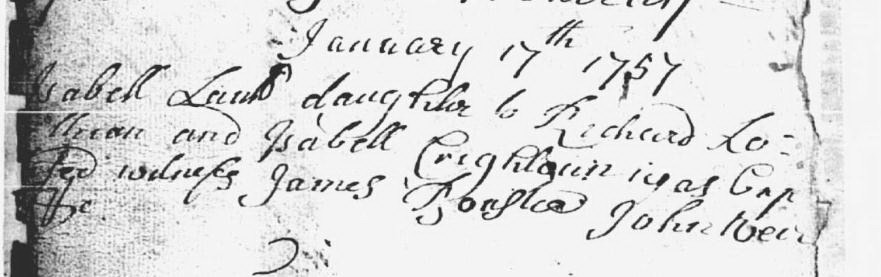 January 17th 1757
Isabell Lamb daughter to Richard Lo=
thian and Isabell Crightoun was Bap
tized witness James Forster John Weir
&c